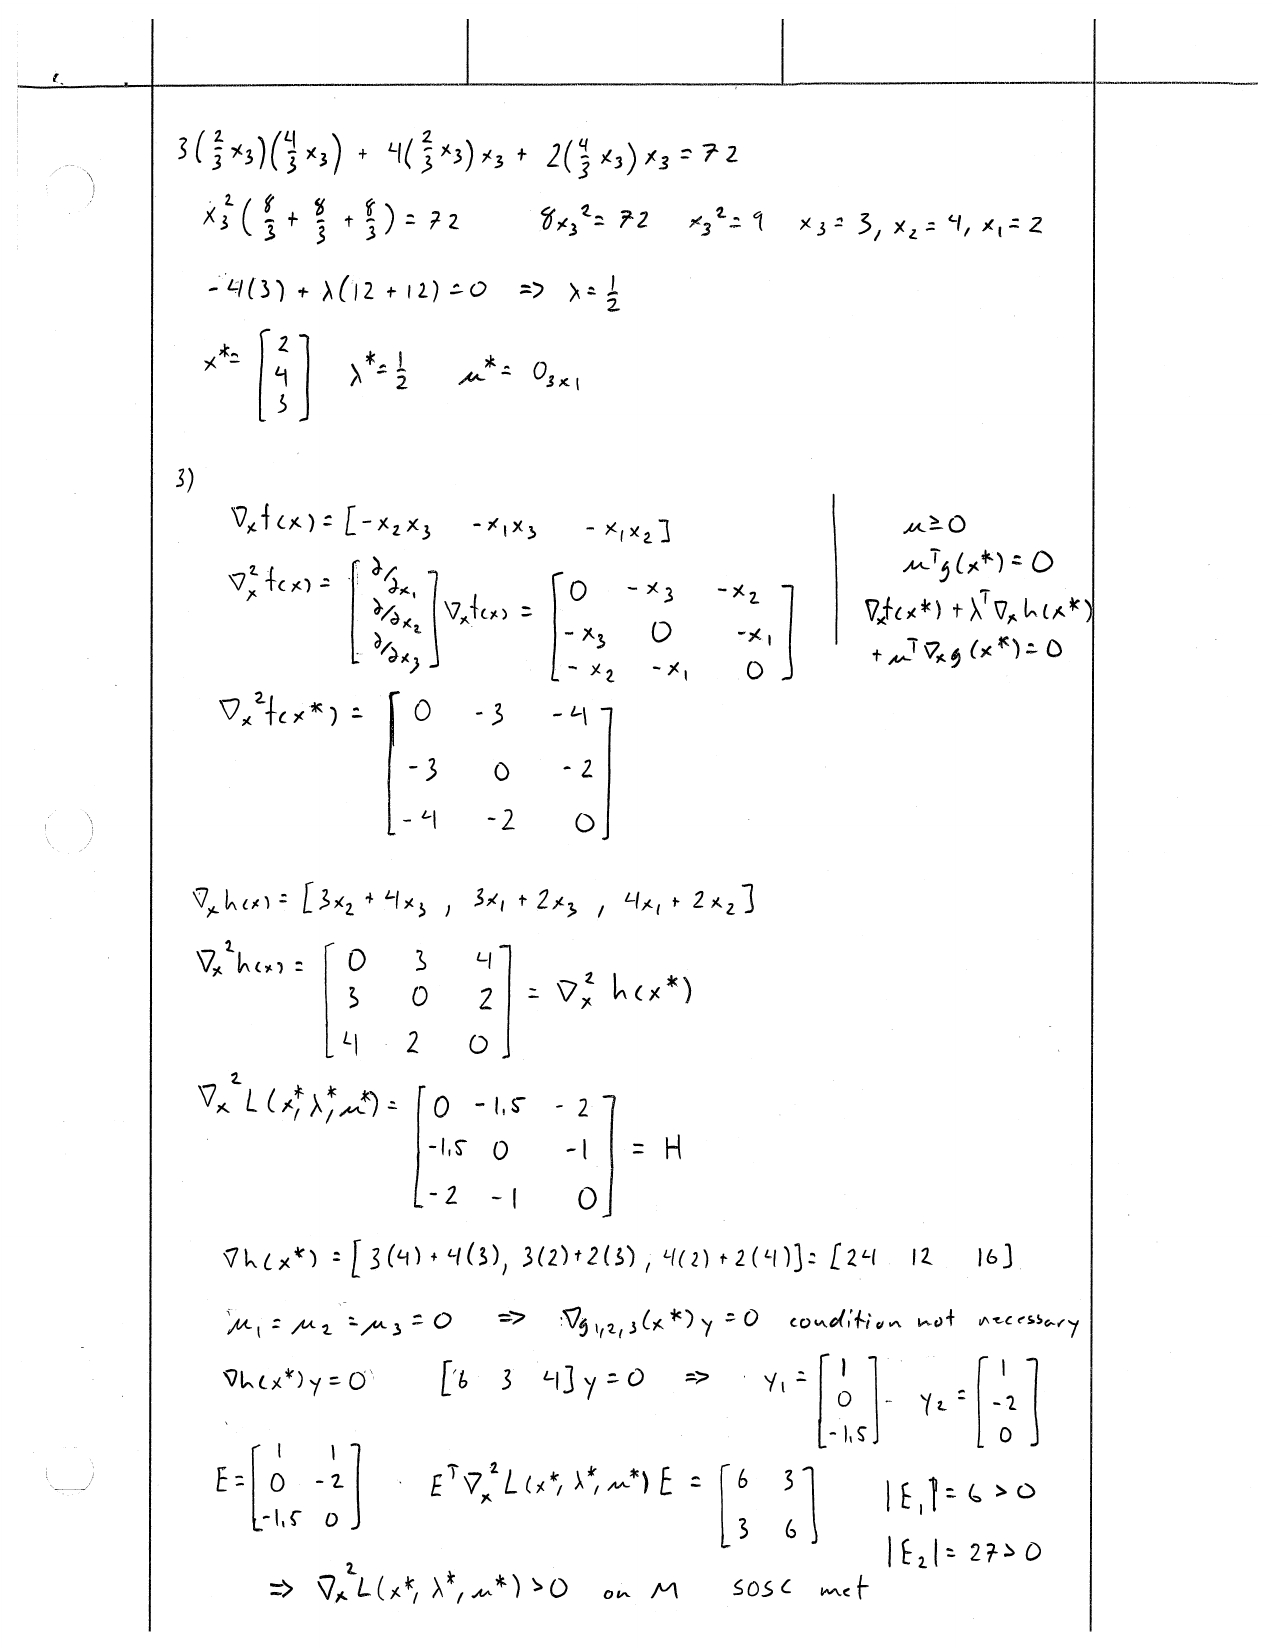 3(2/3 x₃)(4/3 x₃) + 4(2/3 x₃)x₃ + 2(4/3 x₃)x₃ = 72
x₃²(8/3 + 8/3 + 8/3) = 72   8x₃² = 72   x₃² = 9   x₃ = 3, x₂ = 4, x₁ = 2
-4(3) + λ(12 + 12) = 0 => λ = 1/2
x* = [2; 4; 3]   λ* = 1/2   μ* = 0₃ₓ₁
3)
∇ₓf(x) = [-x₂x₃   -x₁x₃   -x₁x₂]
∇ₓ²f(x) = [∂/∂x₁; ∂/∂x₂; ∂/∂x₃] ∇ₓf(x) = [0 -x₃ -x₂; -x₃ 0 -x₁; -x₂ -x₁ 0]
μ ≥ 0
μᵀg(x*) = 0
∇ₓf(x*) + λᵀ∇ₓh(x*)
+ μᵀ∇ₓg(x*) = 0
∇ₓ²f(x*) = [0 -3 -4; -3 0 -2; -4 -2 0]
∇ₓh(x) = [3x₂ + 4x₃ , 3x₁ + 2x₃ , 4x₁ + 2x₂]
∇ₓ²h(x) = [0 3 4; 3 0 2; 4 2 0] = ∇ₓ²h(x*)
∇ₓ²L(x*, λ*, μ*) = [0 -1.5 -2; -1.5 0 -1; -2 -1 0] = H
∇h(x*) = [3(4) + 4(3), 3(2) + 2(3), 4(2) + 2(4)] = [24 12 16]
μ₁ = μ₂ = μ₃ = 0 => ∇g₁,₂,₃(x*)y = 0 condition not necessary
∇h(x*)y = 0   [6 3 4]y = 0 => y₁ = [1; 0; -1.5]   y₂ = [1; -2; 0]
E = [1 1; 0 -2; -1.5 0]   Eᵀ∇ₓ²L(x*, λ*, μ*)E = [6 3; 3 6]   |E₁| = 6 > 0
|E₂| = 27 > 0
=> ∇ₓ²L(x*, λ*, μ*) > 0 on M   SOSC met